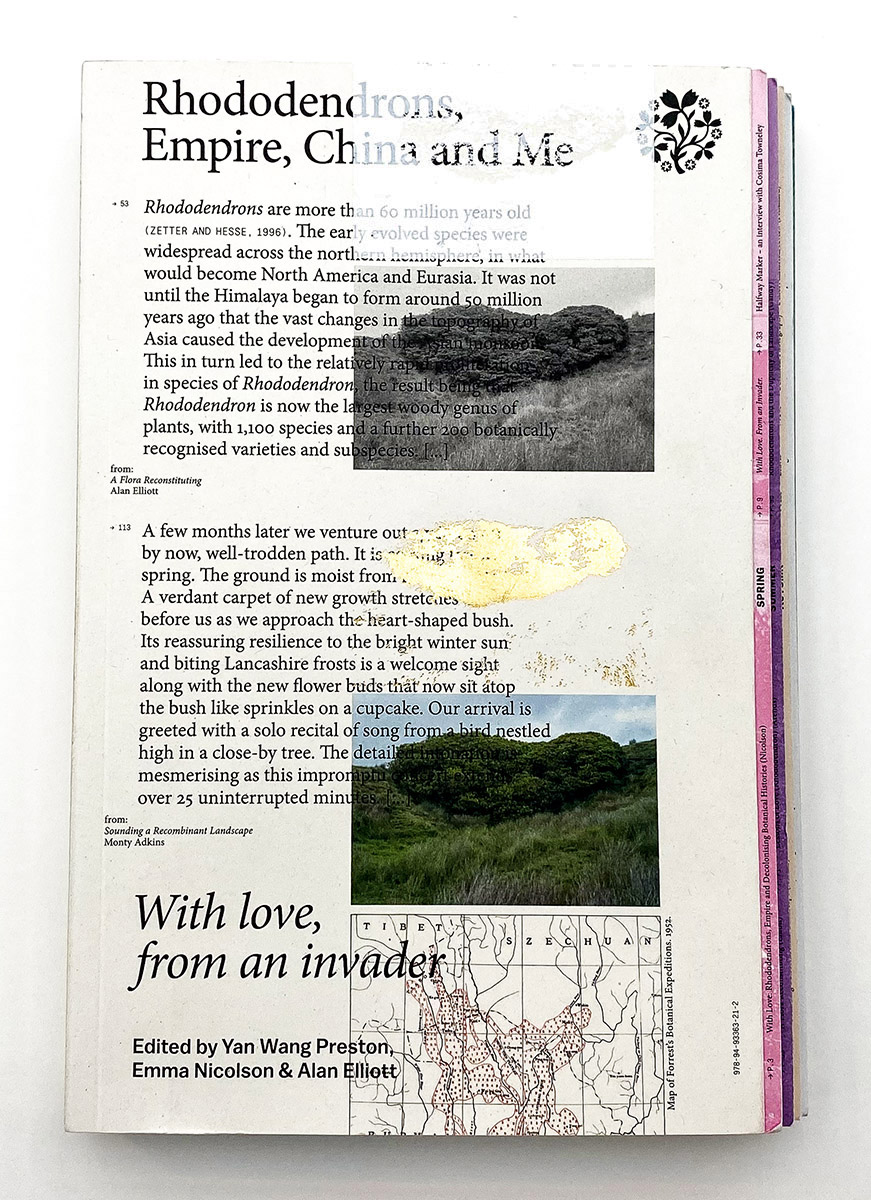 Rhododendrons,
Empire, China and Me
→ 53
Rhododendrons are more than 60 million years old
(ZETTER AND HESSE, 1996). The early evolved species were
widespread across the northern hemisphere, in what
would become North America and Eurasia. It was not
until the Himalaya began to form around 50 million
years ago that the vast changes in the topography of
Asia caused the development of the Asian monsoon.
This in turn led to the relatively rapid
in species of Rhododendron, the result being that
Rhododendron is now the largest woody genus of
plants, with 1,100 species and a further 200 botanically
recognised varieties and subspecies. [...]
from:
A Flora Reconstituting
Alan Elliott
→ 113
A few months later we venture out
by now, well-trodden path. It is
spring. The ground is moist from
A verdant carpet of new growth stretches
before us as we approach the heart-shaped bush.
Its reassuring resilience to the bright winter sun
and biting Lancashire frosts is a welcome sight
along with the new flower buds that now sit atop
the bush like sprinkles on a cupcake. Our arrival is
greeted with a solo recital of song from a bird nestled
high in a close-by tree. The detailed
mesmerising as this impromptu concert extends
over 25 uninterrupted minutes. [...]
from:
Sounding a Recombinant Landscape
Monty Adkins
With love,
from an invader
Edited by Yan Wang Preston,
Emma Nicolson & Alan Elliott
TIBET
SZECHUAN
Map of Forrest's Botanical Expeditions. 1952.
978-94-93363-21-2
Halfway Marker – an interview with Cosima Towneley
→ P.33
With Love. From an Invader.
→ P.9
SPRING
SUMMER
With Love. Rhododendrons, Empire and Decolonising Botanical Histories (Nicolson)
→ P.3